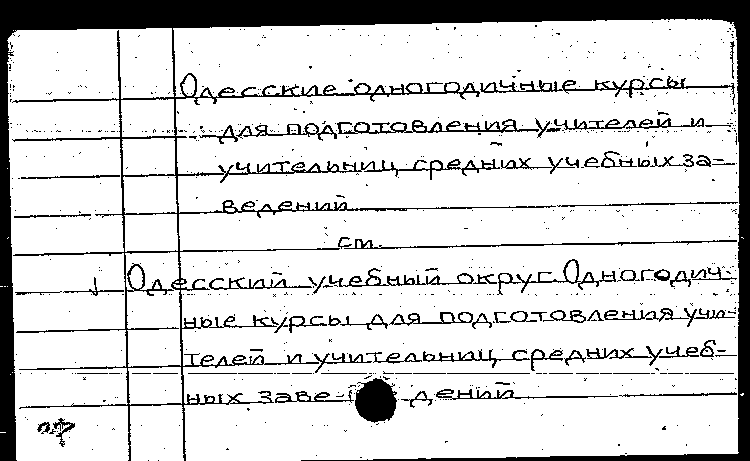 Одесские одногодичные курсы
для подготовления учителей и
учительниц средних учебных за-
ведений
см.
Одесский учебный округ. Одногодич-
ные курсы для подготовления учи-
телей и учительниц средних учеб-
ных заве- дений